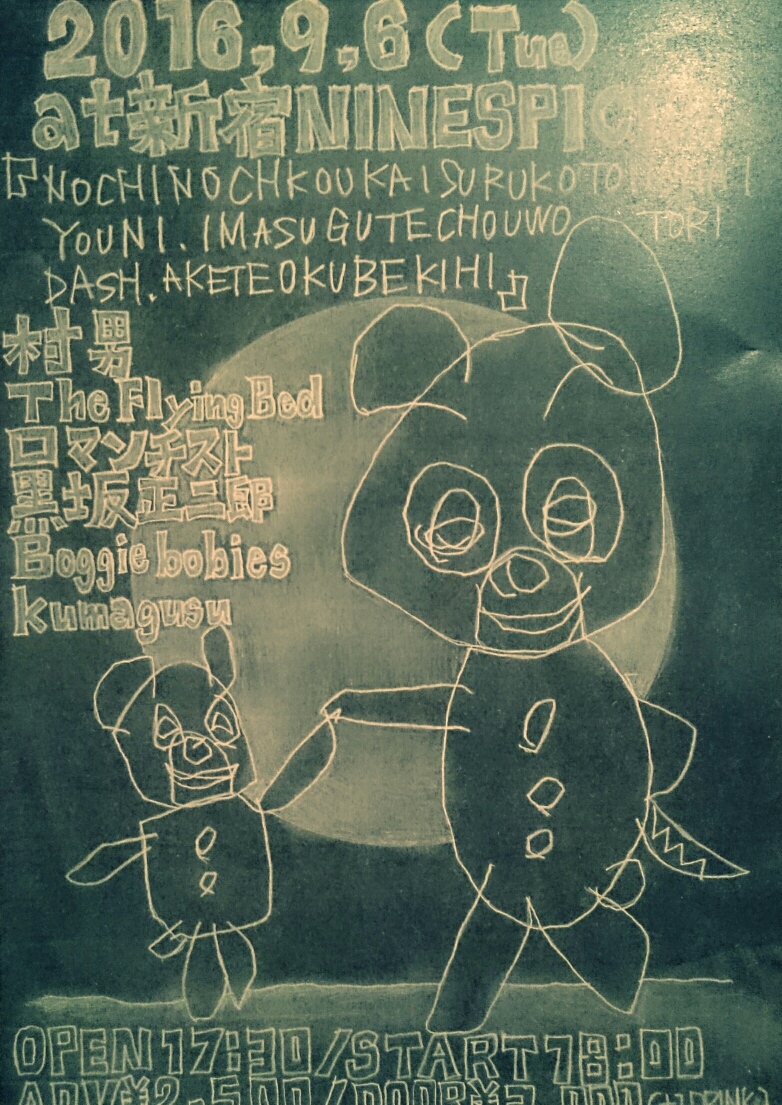 2016,9,6(Tue)
at新宿NINESPIC
『NOCHINOCHKOUKAISURUKOTO
YOUNI.IMASUGUTECHOUWO TORI
DASH.AKETEOKUBEKIHI』
村男
The Flying Bed
ロマンチスト
黒坂正二郎
Boggie bobies
kumagusu
OPEN 17:30/START 18:00
ADV¥2,500/DOOR¥3,000(+1DRINK)